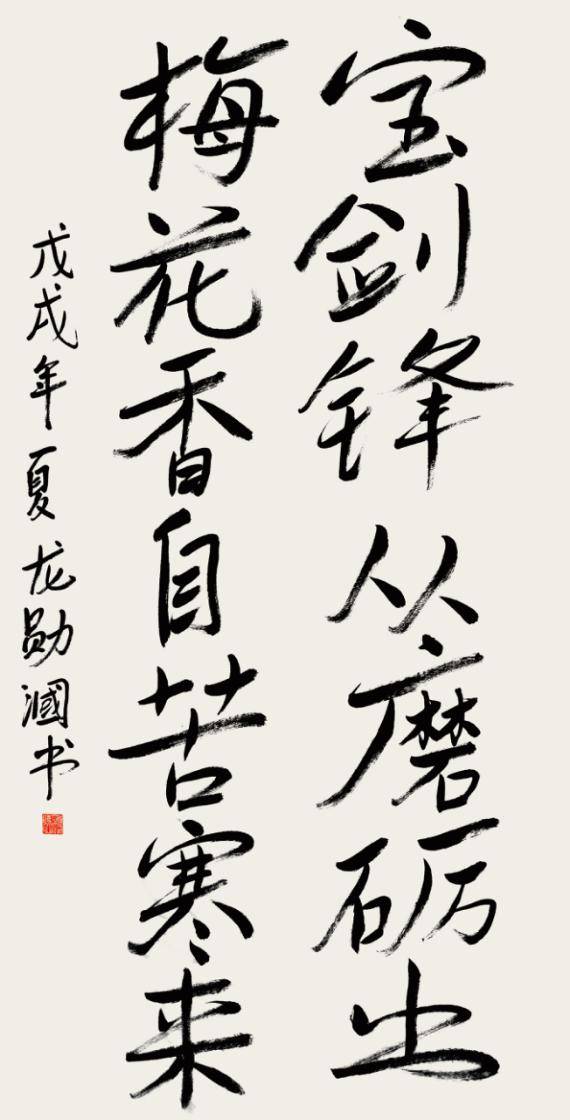 宝剑锋从磨砺出
梅花香自苦寒来
戊戌年夏龙勋國书